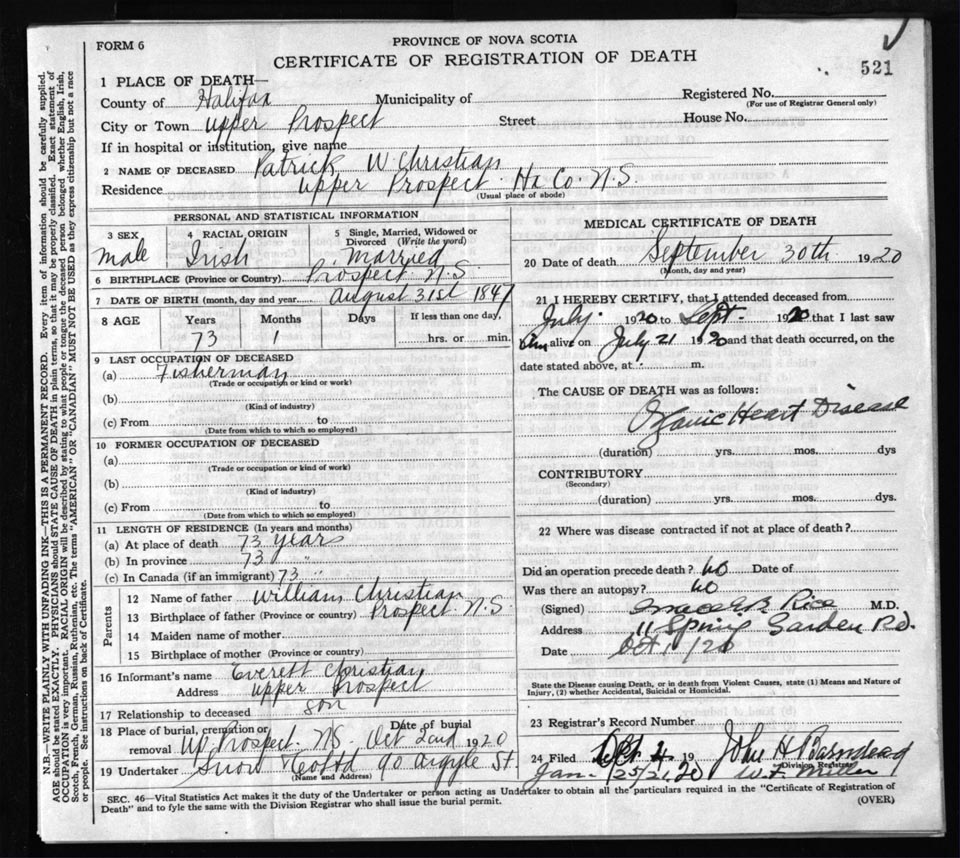 FORM 6
PROVINCE OF NOVA SCOTIA
CERTIFICATE OF REGISTRATION OF DEATH
521
1 PLACE OF DEATH—
County of Halifax Municipality of
Registered No.
(For use of Registrar General only)
City or Town Upper Prospect Street House No.
If in hospital or institution, give name
2 NAME OF DECEASED Patrick W Christian
Residence Upper Prospect Hx Co. N.S.
(Usual place of abode)
PERSONAL AND STATISTICAL INFORMATION
3 SEX
male
4 RACIAL ORIGIN
Irish
5 Single, Married, Widowed or Divorced (Write the word)
Married
6 BIRTHPLACE (Province or Country) Prospect N.S
7 DATE OF BIRTH (month, day and year August 31st 1847
8 AGE Years Months Days If less than one day,
73 1 hrs. or min.
9 LAST OCCUPATION OF DECEASED
(a) Fisherman
(Trade or occupation or kind of work)
(b)
(Kind of industry)
(c) From to
(Date from which to which so employed)
10 FORMER OCCUPATION OF DECEASED
(a)
(Trade or occupation or kind of work)
(b)
(Kind of industry)
(c) From to
(Date from which to which so employed)
11 LENGTH OF RESIDENCE (In years and months)
(a) At place of death 73 years
(b) In province 73 "
(c) In Canada (if an immigrant) 73 "
Parents
12 Name of father William Christian
13 Birthplace of father (Province or country) Prospect N.S.
14 Maiden name of mother
15 Birthplace of mother (Province or country)
16 Informant's name Everett Christian
Address Upper Prospect
17 Relationship to deceased son
18 Place of burial, cremation or removal Up. Prospect NS. Date of burial Oct 2nd 1920
19 Undertaker Snow 90 Argyle St.
(Name and Address)
MEDICAL CERTIFICATE OF DEATH
20 Date of death September 30th 1920
(Month, day and year)
21 I HEREBY CERTIFY, that I attended deceased from
July 1920 to Sept 1920 that I last saw
him alive on July 21 1920 and that death occurred, on the
date stated above, at m.
The CAUSE OF DEATH was as follows:
Organic Heart Disease
(duration) yrs. mos. dys
CONTRIBUTORY
(Secondary)
(duration) yrs. mos. dys.
22 Where was disease contracted if not at place of death?
Did an operation precede death? no Date of
Was there an autopsy? no
(Signed) Rice M.D.
Address 11 Spring Garden Rd.
Date Oct 1/20
State the Disease causing Death, or in death from Violent Causes, state (1) Means and Nature of
Injury, (2) whether Accidental, Suicidal or Homicidal.
23 Registrar's Record Number
24 Filed Oct 4 19 John H Barnstead
Division Registrar
Jan. 25/21 20 W. F. Miller
SEC. 46—Vital Statistics Act makes it the duty of the Undertaker or person acting as Undertaker to obtain all the particulars required in the "Certificate of Registration of
Death" and to fyle the same with the Division Registrar who shall issue the burial permit.
(OVER)
N.B.—WRITE PLAINLY WITH UNFADING INK—THIS IS A PERMANENT RECORD. Every item of information should be carefully supplied.
AGE should be stated EXACTLY. PHYSICIANS should STATE CAUSE OF DEATH in plain terms, so that it may be properly classified. Exact statement of
OCCUPATION is very important. RACIAL ORIGIN will be described by stating to what people or tongue the deceased person belonged whether English, Irish,
Scotch, French, German, Russian, Ruthenian, etc. The terms "AMERICAN" OR "CANADIAN" MUST NOT BE USED as they express citizenship but not a race
or people. See instructions on back of Certificate.